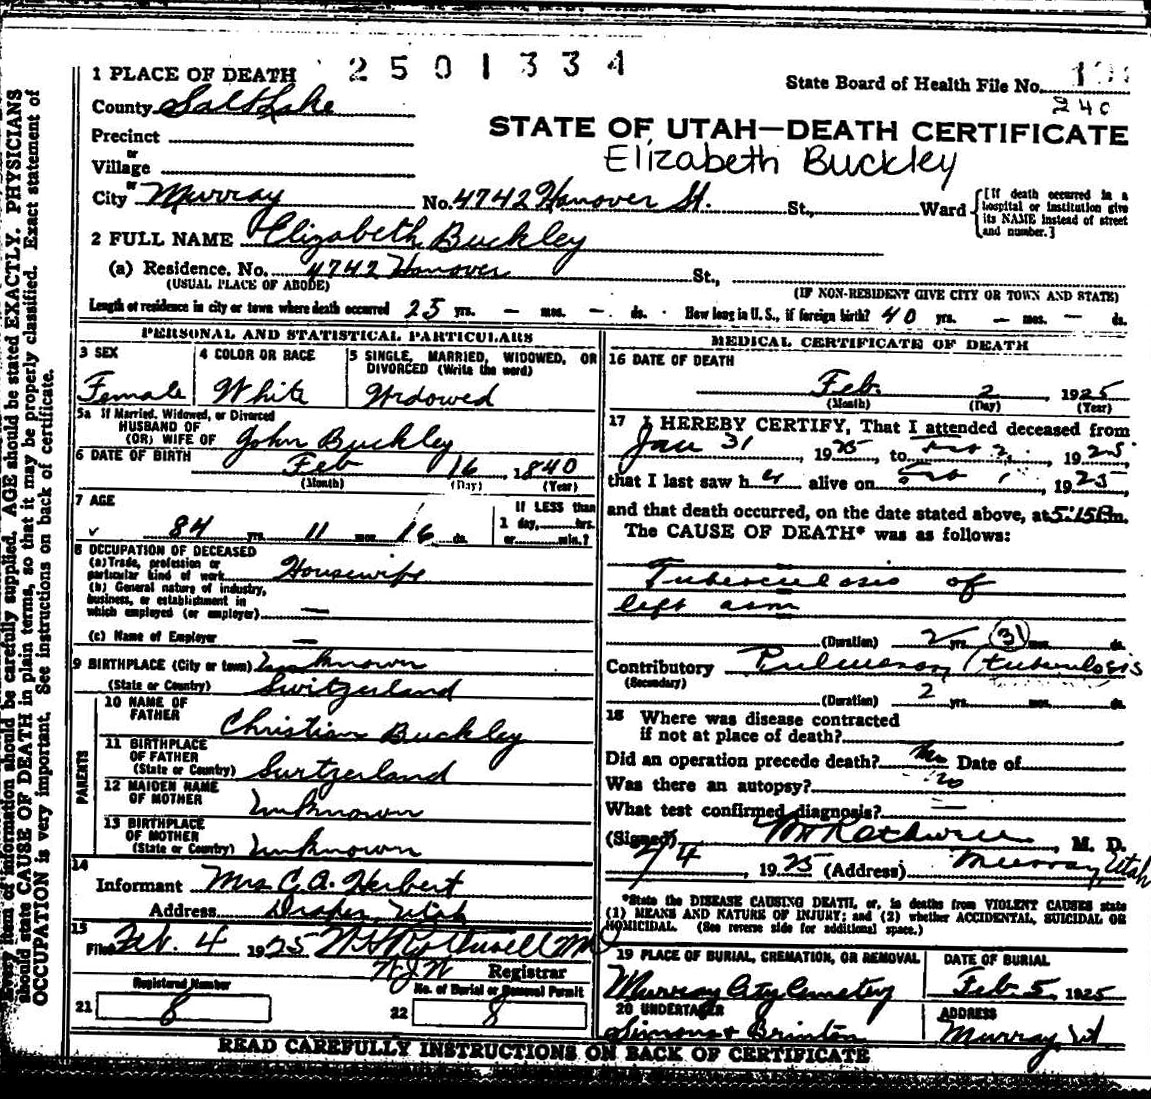 2501334
1 PLACE OF DEATH
State Board of Health File No.
240
County Salt Lake
STATE OF UTAH—DEATH CERTIFICATE
Elizabeth Buckley
Precinct
or
Village
or
City Murray No. 4742 Hanover St. St., Ward
[If death occurred in a hospital or institution give its NAME instead of street and number.]
2 FULL NAME Elizabeth Buckley
(a) Residence. No. 4742 Hanover St.,
(USUAL PLACE OF ABODE) (IF NON-RESIDENT GIVE CITY OR TOWN AND STATE)
Length of residence in city or town where death occurred 25 yrs. — mos. — ds. How long in U. S., if foreign birth? 40 yrs. — mos. — ds.
PERSONAL AND STATISTICAL PARTICULARS
3 SEX
Female
4 COLOR OR RACE
White
5 SINGLE, MARRIED, WIDOWED, OR DIVORCED (Write the word)
Widowed
5a If Married, Widowed, or Divorced
HUSBAND OF
(OR) WIFE OF John Buckley
6 DATE OF BIRTH Feb 16, 1840
(Month) (Day) (Year)
7 AGE
84 yrs. 11 mos. 16 ds.
If LESS than
1 day,.....hrs.
or.....min.?
8 OCCUPATION OF DECEASED
(a) Trade, profession or
particular kind of work Housewife
(b) General nature of industry,
business, or establishment in
which employed (or employer) —
(c) Name of Employer —
9 BIRTHPLACE (City or town) Unknown
(State or Country) Switzerland
PARENTS
10 NAME OF
FATHER Christian Buckley
11 BIRTHPLACE
OF FATHER
(State or Country) Switzerland
12 MAIDEN NAME
OF MOTHER Unknown
13 BIRTHPLACE
OF MOTHER
(State or Country) Unknown
14
Informant Mrs C. A. Herbert
Address Draper, Utah
15
Filed Feb. 4 1925
Registrar
Registered Number
21 8
No. of Burial or Removal Permit
22 8
MEDICAL CERTIFICATE OF DEATH
16 DATE OF DEATH
Feb. 2 1925
(Month) (Day) (Year)
17 I HEREBY CERTIFY, That I attended deceased from
Jan 31 1925, to Feb 2, 1925,
that I last saw her alive on Feb 1, 1925,
and that death occurred, on the date stated above, at 5:15 P.m.
The CAUSE OF DEATH* was as follows:
Tuberculosis of
left arm
(Duration) 2 yrs. 31 mos. ds.
Contributory Pulmonary tuberculosis
(Secondary)
(Duration) 2 yrs. mos. ds.
18 Where was disease contracted
if not at place of death?
Did an operation precede death? No Date of
Was there an autopsy? No
What test confirmed diagnosis? —
(Signed) M. D.
2/4 1925 (Address) Murray, Utah
*State the DISEASE CAUSING DEATH, or, in deaths from VIOLENT CAUSES state
(1) MEANS AND NATURE OF INJURY; and (2) whether ACCIDENTAL, SUICIDAL OR
HOMICIDAL. (See reverse side for additional space.)
19 PLACE OF BURIAL, CREMATION, OR REMOVAL
Murray City Cemetery
DATE OF BURIAL
Feb. 5, 1925
20 UNDERTAKER
Simons & Brinton
ADDRESS
Murray, Ut.
READ CAREFULLY INSTRUCTIONS ON BACK OF CERTIFICATE
Every item of information should be carefully supplied. AGE should be stated EXACTLY. PHYSICIANS
should state CAUSE OF DEATH in plain terms, so that it may be properly classified. Exact statement of
OCCUPATION is very important. See instructions on back of certificate.